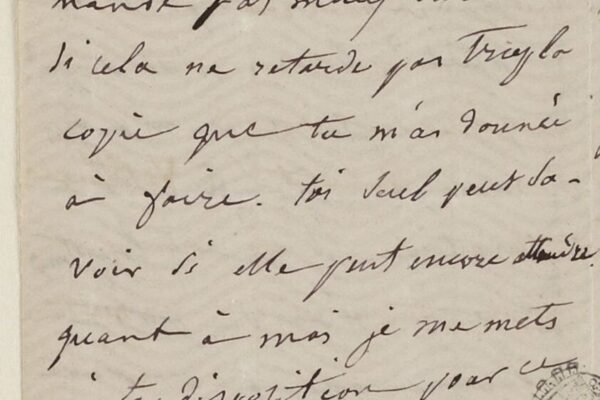 mande pas mieux
si cela ne retarde pas trop la
copie que tu m'as donnée
à faire. toi seul peut sa-
voir si elle peut encore attendre.
quant à moi je me mets
à ta disposition pour ce